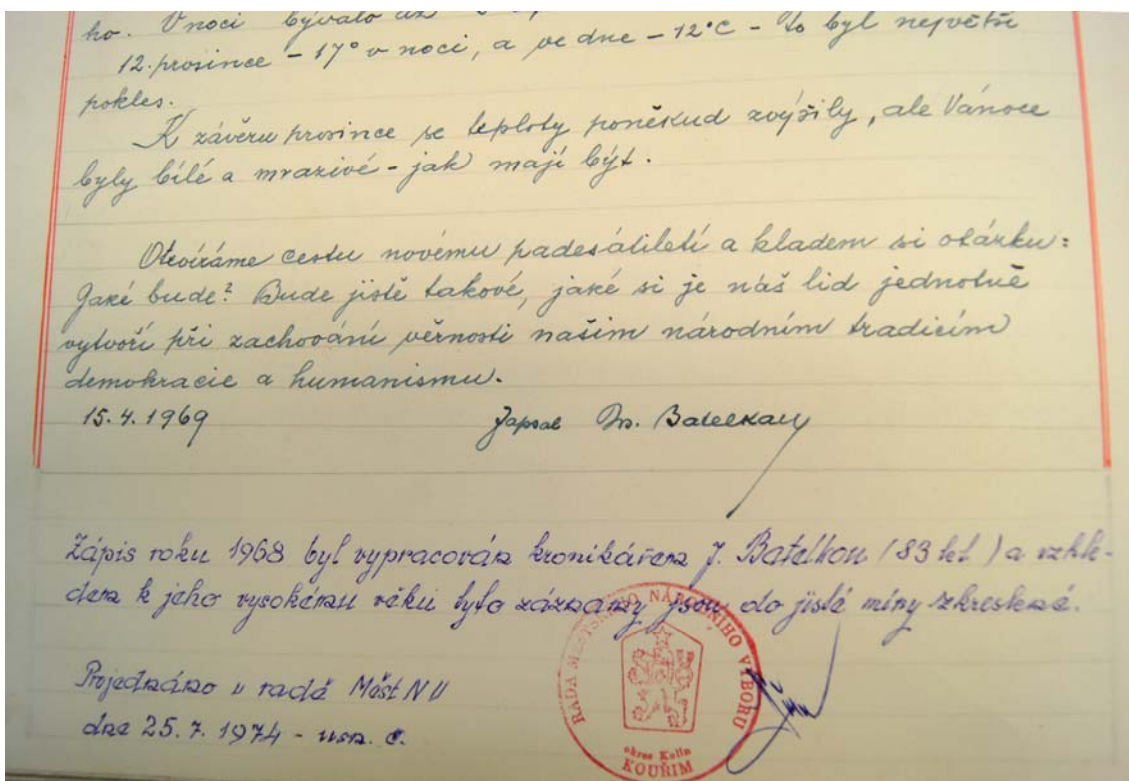 ho. V noci bývalo až
12. prosince - 17° v noci, a ve dne - 12°C - to byl největší
pokles.
K závěru prosince se teploty poněkud zvýšily, ale Vánoce
byly bílé a mrazivé - jak mají být.
Otevíráme cestu novému padesátiletí a kladem si otázku:
Jaké bude? Bude jistě takové, jaké si je náš lid jednotně
vytvoří při zachování věrnosti našim národním tradicím
demokracie a humanismu.
15.4.1969 Zapsal
Zápis roku 1968 byl vypracován kronikářem J. Batelkou (83 let) a vzhle-
dem k jeho vysokému věku tyto záznamy jsou do jisté míry zkreslené.
RADA MĚSTSKÉHO NÁRODNÍHO VÝBORU
okres Kolín
KOUŘIM
Projednáno v radě Měst NV
dne 25.7.1974 - usn. č.